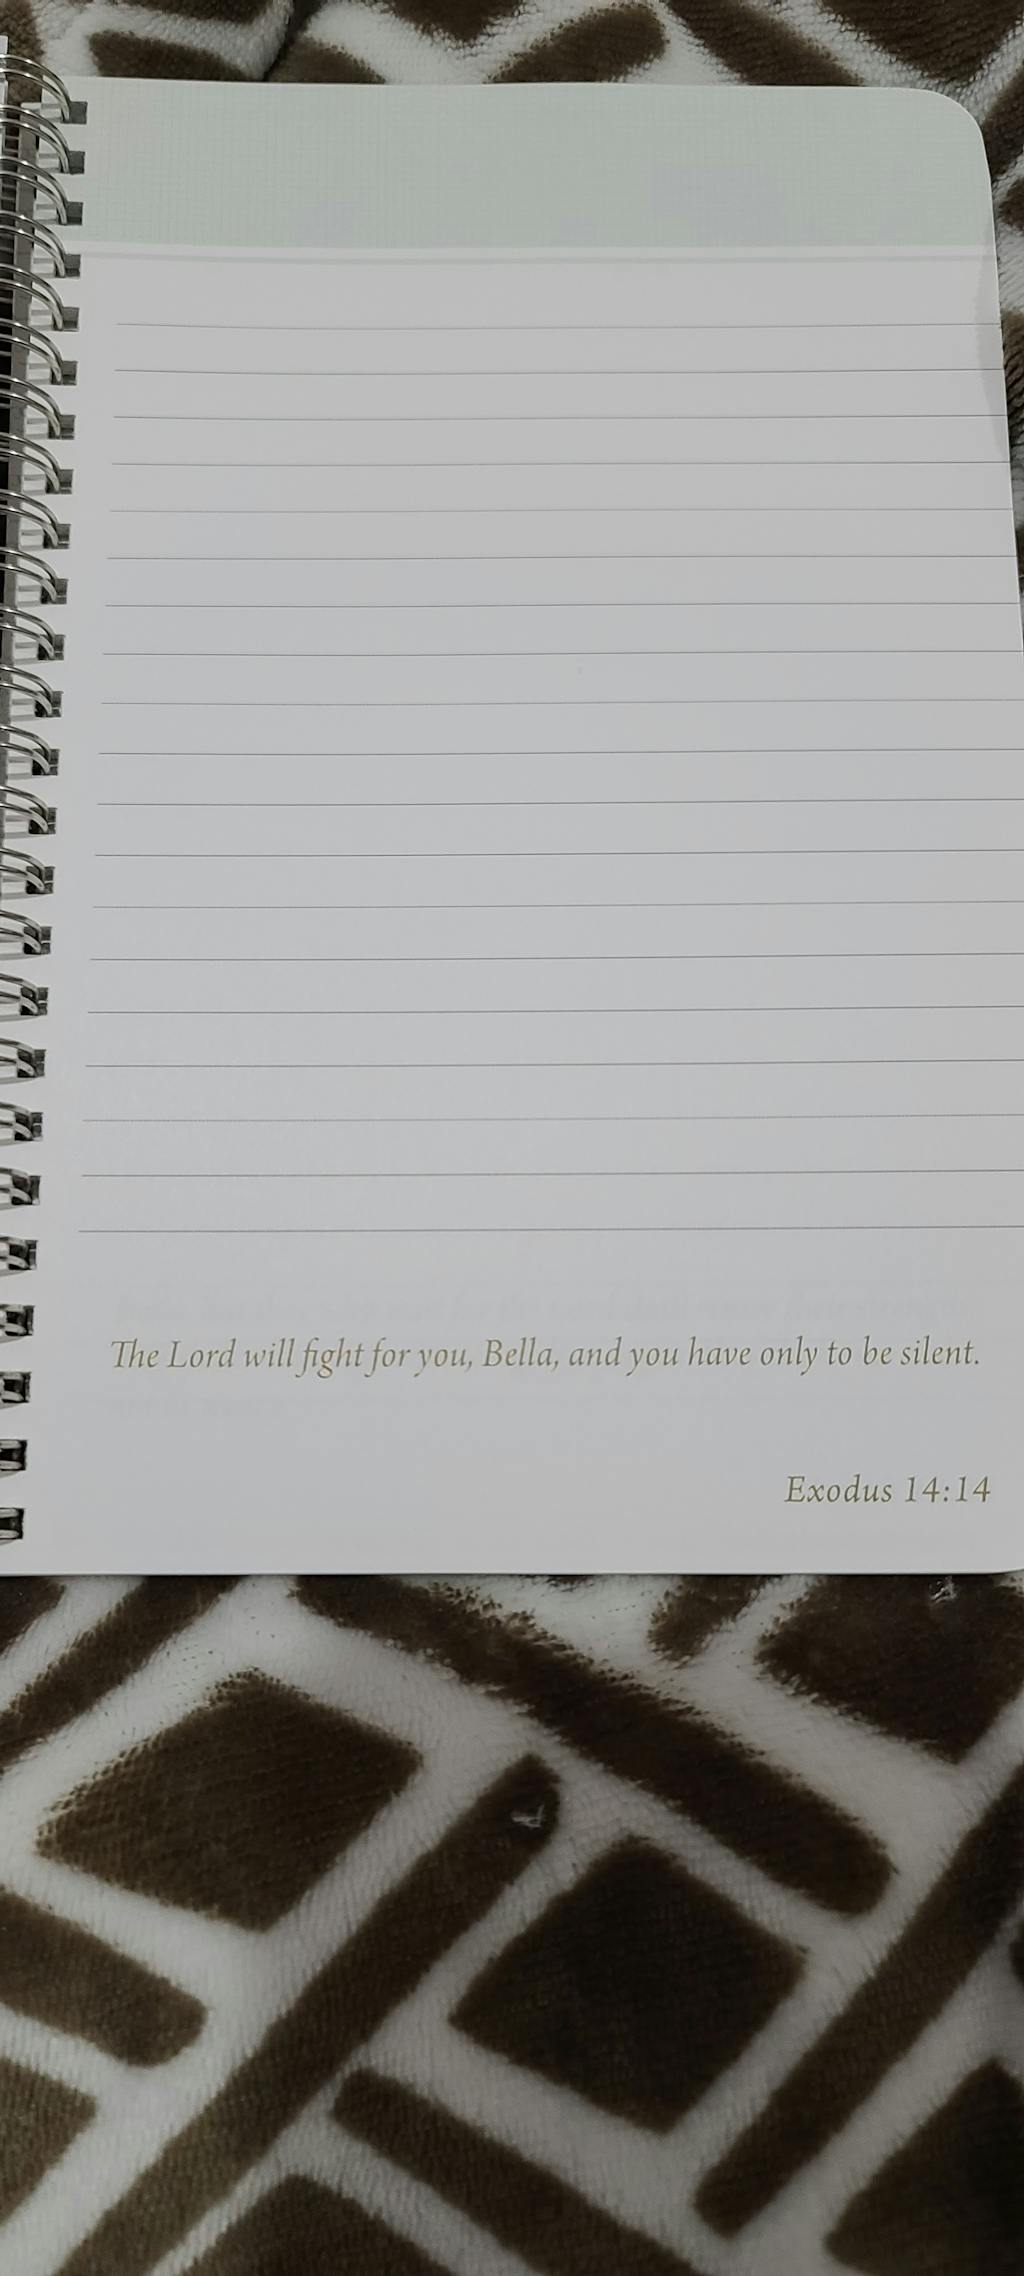 The Lord will fight for you, Bella, and you have only to be silent.
Exodus 14:14